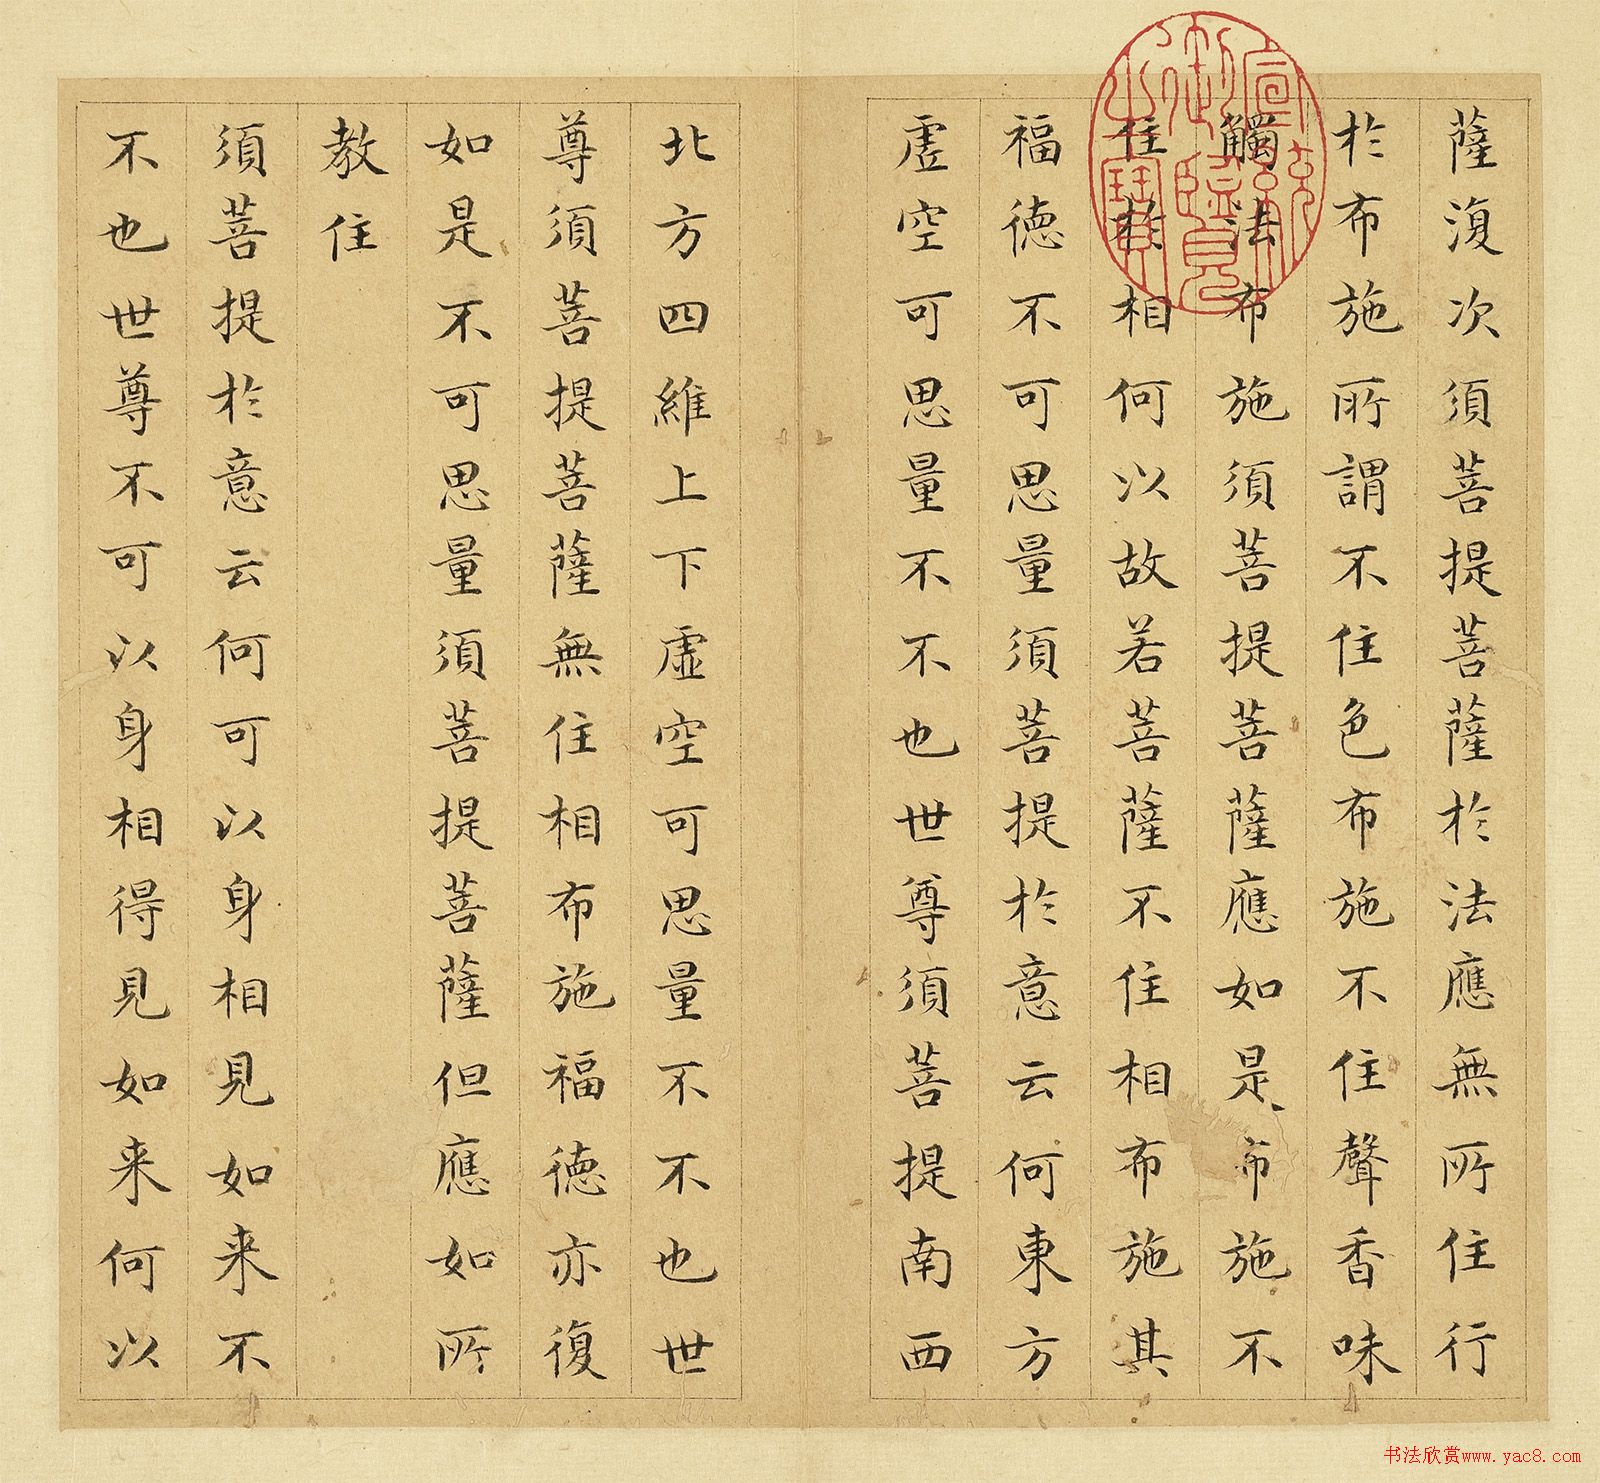 薩復次須菩提菩薩於法應無所住行
於布施所謂不住色布施不住聲香味
觸法布施須菩提菩薩應如是布施不
住於相何以故若菩薩不住相布施其
福德不可思量須菩提於意云何東方
虛空可思量不不也世尊須菩提南西
北方四維上下虛空可思量不不也世
尊須菩提菩薩無住相布施福德亦復
如是不可思量須菩提菩薩但應如所
教住
須菩提於意云何可以身相見如来不
不也世尊不可以身相得見如来何以
宣統御覽之寶
书法欣赏www.yac8.com